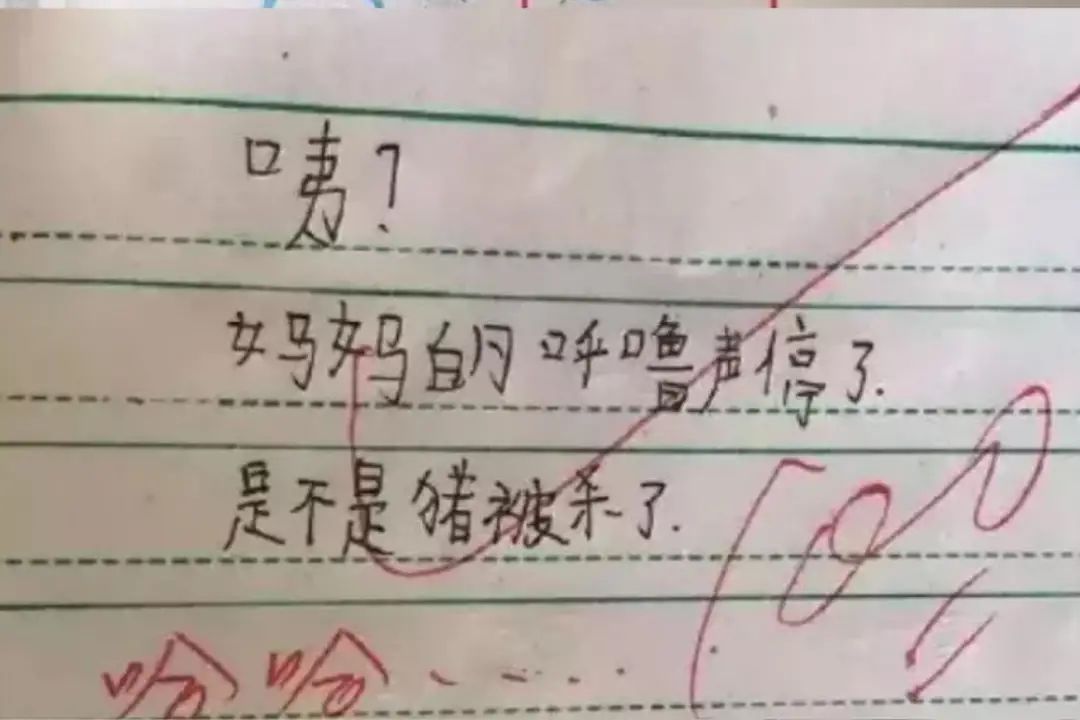 咦？
妈妈的呼噜声停了.
是不是猪被杀了.
100!!
哈哈……